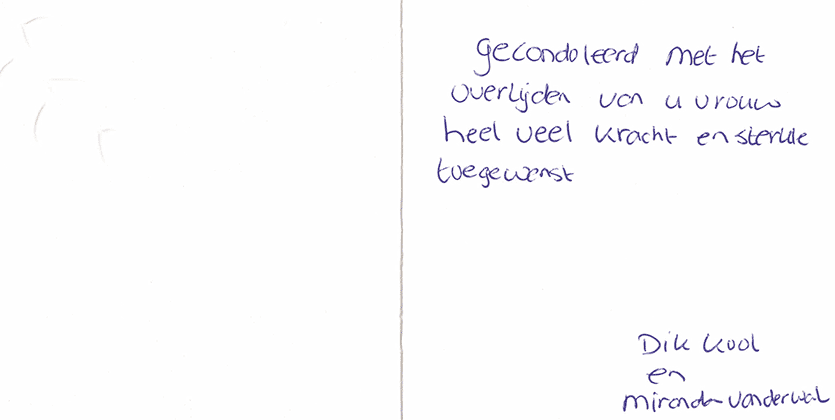 gecondoleerd met het
overlijden van u vrouw
heel veel kracht en sterkte
toegewenst
Dik Kool
en
miranda vanderwal